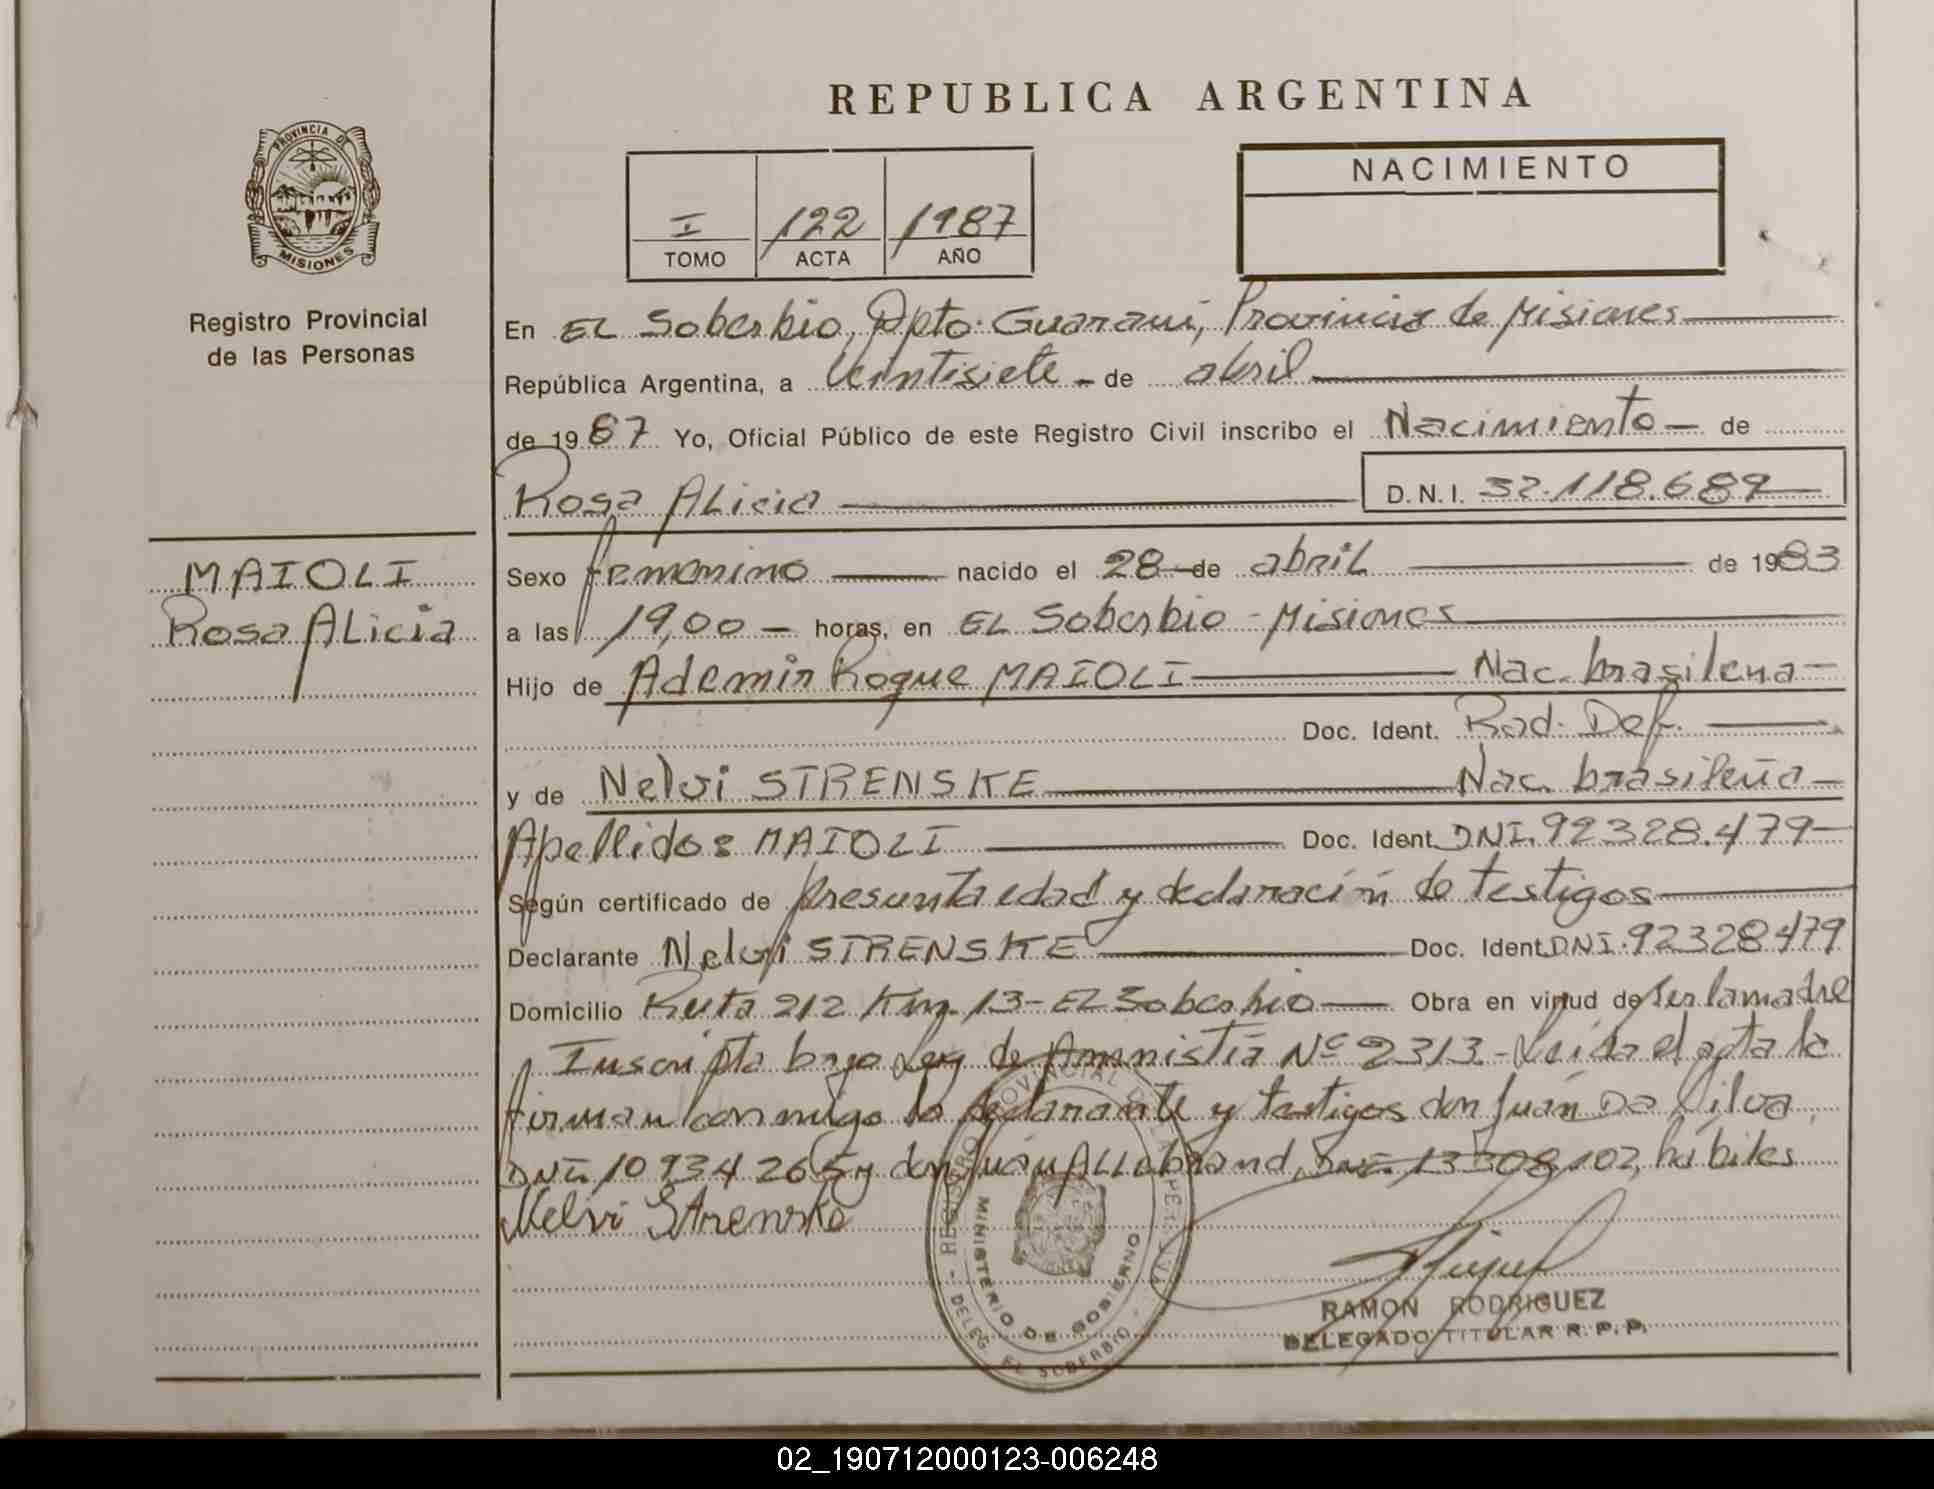 REPUBLICA ARGENTINA
PROVINCIA DE MISIONES
Registro Provincial
de las Personas
I 122 1987
TOMO ACTA AÑO
NACIMIENTO
En EL Soberbio, Dpto. Guaraní, Provincia de Misiones
República Argentina, a veintisiete de abril
de 1987 Yo, Oficial Público de este Registro Civil inscribo el Nacimiento de
Rosa ALicia D.N.I. 32.118.689
MAIOLI
Rosa ALicia
Sexo femenino nacido el 28 de abril de 1983
a las 19,00 horas, en EL Soberbio - Misiones
Hijo de Ademir Roque MAIOLI Nac. brasilena
Doc. Ident. Rad. Def.
y de Nelvi STRENSKE Nac. brasileña
Apellidos MAIOLI Doc. Ident. DNI. 92328.479
Según certificado de presunta edad y declaración de testigos
Declarante Nelvi STRENSKE Doc. Ident. DNI. 92328479
Domicilio Ruta 212 Km. 13 - EL Soberbio Obra en virtud de ser la madre
Inscripta bajo Ley de Amnistía Nº 2313 - Leída el acta la
firman conmigo la declarante y testigos don Juán Da Silva,
DNI. 10934265 y don Juán ALLebrand, DNI. 13308,102, hábiles
Nelvi Strenske
REGISTRO PROVINCIAL DE LAS PERSONAS
MINISTERIO DE GOBIERNO
- DELEG. EL SOBERBIO -
RAMON RODRIGUEZ
DELEGADO TITULAR R. P. P.
02_190712000123-006248